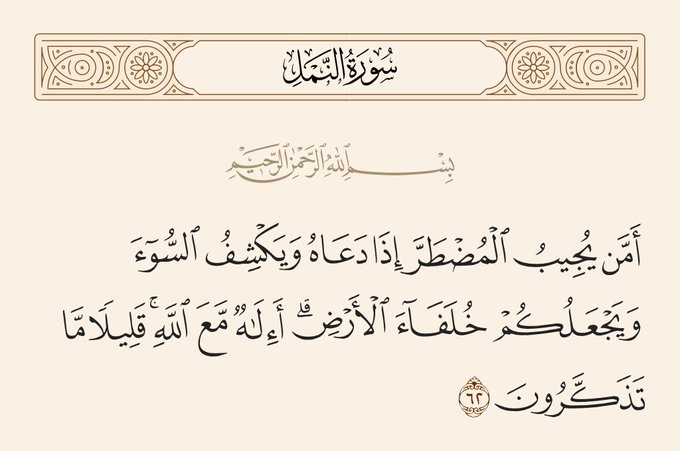 سُورَةُ النَّمۡلِ
بِسۡمِ ٱللَّهِ ٱلرَّحۡمَٰنِ ٱلرَّحِيمِ
أَمَّن يُجِيبُ ٱلۡمُضۡطَرَّ إِذَا دَعَاهُ وَيَكۡشِفُ ٱلسُّوٓءَ
وَيَجۡعَلُكُمۡ خُلَفَآءَ ٱلۡأَرۡضِۗ أَءِلَٰهٞ مَّعَ ٱللَّهِۚ قَلِيلٗا مَّا
تَذَكَّرُونَ ٦٢